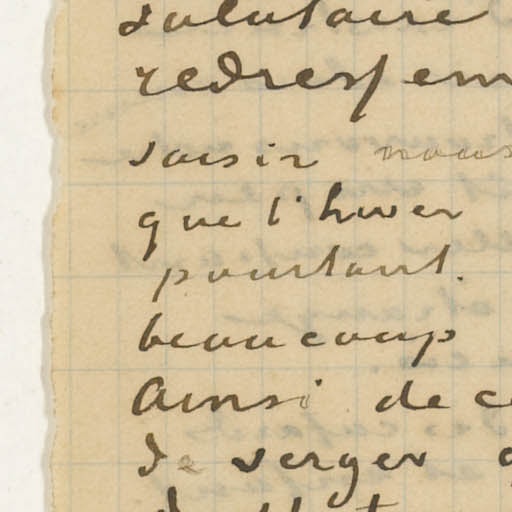 salutaire
redressem
saisir nous
que l'hiver
pourtant.
beaucoup
Ainsi de ce
de verger